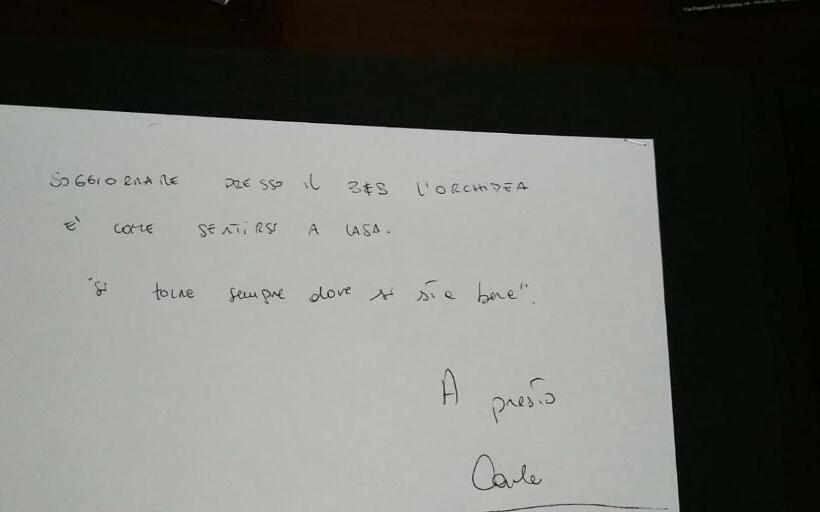 SOGGIORNARE PRESSO IL B&B L'ORCHIDEA
E' COME SENTIRSI A CASA.
"si torna sempre dove si sta bene".
A presto
Carla